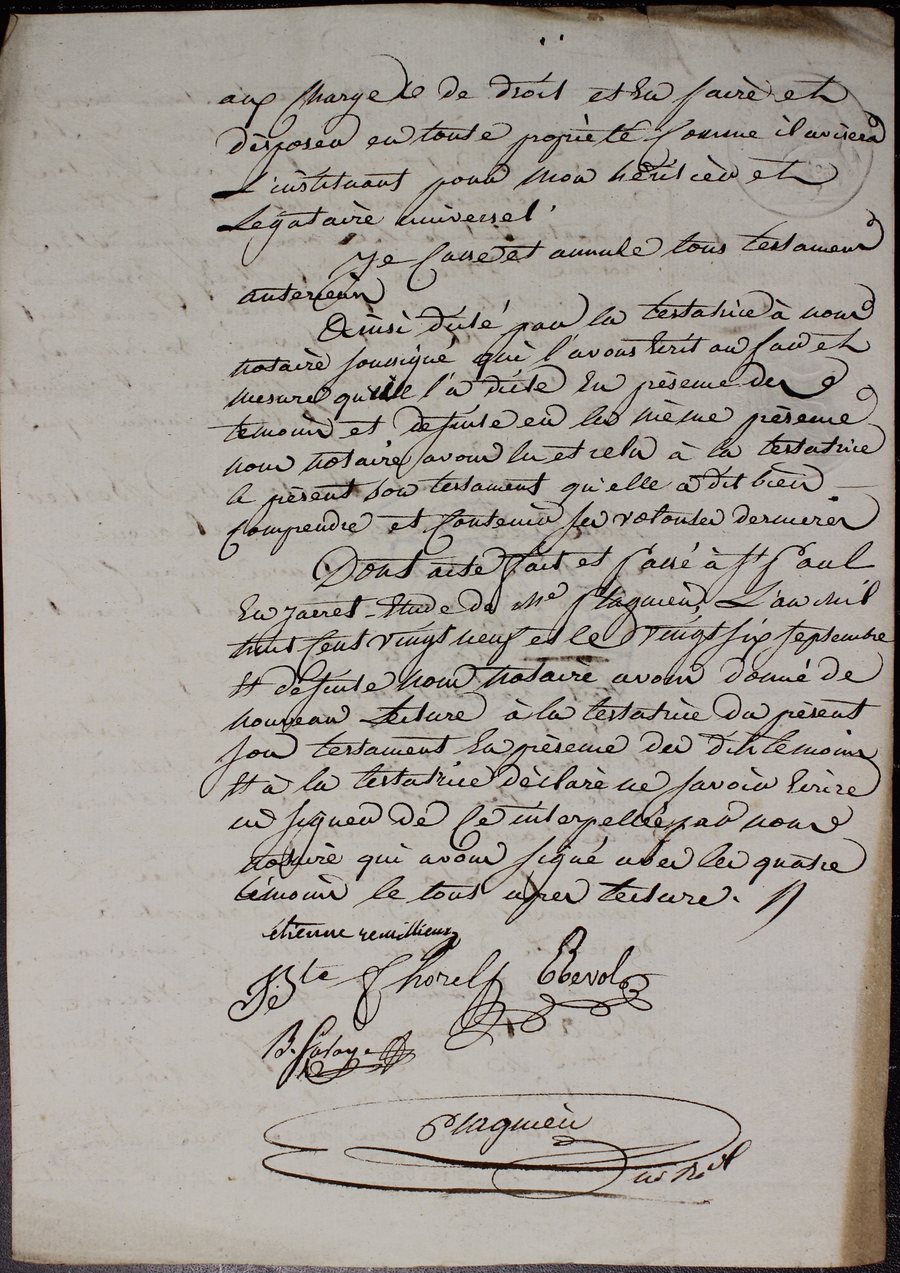 aux charge de droit et En faire et
disposer en toute propriété Comme il avisera
L'instituant pour mon héritier et
Légataire universel.
Je Casse et annule tous testament
anterieur
Ainsi dicté par la testatrice à nous
notaire soussigné qui l'avons Ecrit au fur et
mesure qu'elle l'a dicté En présence des
temoins et de suite en la même présence
nous notaire avons lu et relu à la testatrice
le présent son testament qu'elle a dit bien
Comprendre et Contenir ses volontés dernieres
Dont acte fait et Passé à St Paul
En jarret Etude de Me Plagnieu, L'an Mil
huit Cent vingt neuf et le vingt six septembre
Et de suite nous notaire avons donné de
nouveau lecture à la testatrice du présent
son testament En présence des dits temoins
Et à la testatrice déclaré ne savoir Ecrire
ni signer de Ce interpellée par nous
notaire qui avons signé avec les quatre
témoins le tous après lecture.
étienne remillieux
JBte Thorel Revol
B.
Plagnieu